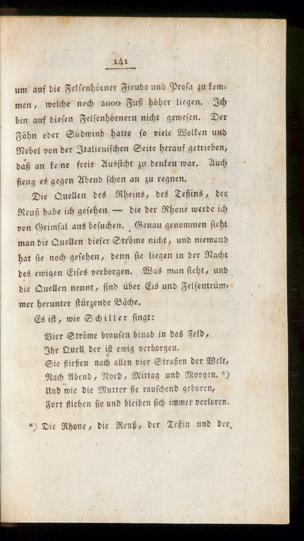 141
um auf die Felsenhörner Fieudo und Prosa zu kom-
men, welche noch 2000 Fuß höher liegen. Ich
bin auf diesen Felsenhörnern nicht gewesen. Der
Föhn oder Südwind hatte so viele Wolken und
Nebel von der Italienischen Seite herauf getrieben,
daß an keine freie Aussicht zu denken war. Auch
fieng es gegen Abend schon an zu regnen.
Die Quellen des Rheins, des Teßins, der
Reuß habe ich gesehen — die der Rhone werde ich
von Grimsal aus besuchen. Genau genommen sieht
man die Quellen dieser Ströme nicht, und niemand
hat sie noch gesehen, denn sie liegen in der Nacht
des ewigen Eises verborgen. Was man sieht, und
die Quellen nennt, sind über Eis und Felsentrüm-
mer herunter stürzende Bäche.
Es ist, wie Schiller singt:
Vier Ströme brausen hinab in das Feld,
Ihr Quell der ist ewig verborgen.
Sie fließen nach allen vier Straßen der Welt,
Nach Abend, Nord, Mittag und Morgen. *)
Und wie die Mutter sie rauschend geboren,
Fort fliehen sie und bleiben sich immer verloren.
*) Die Rhone, die Reuß, der Teßin und der